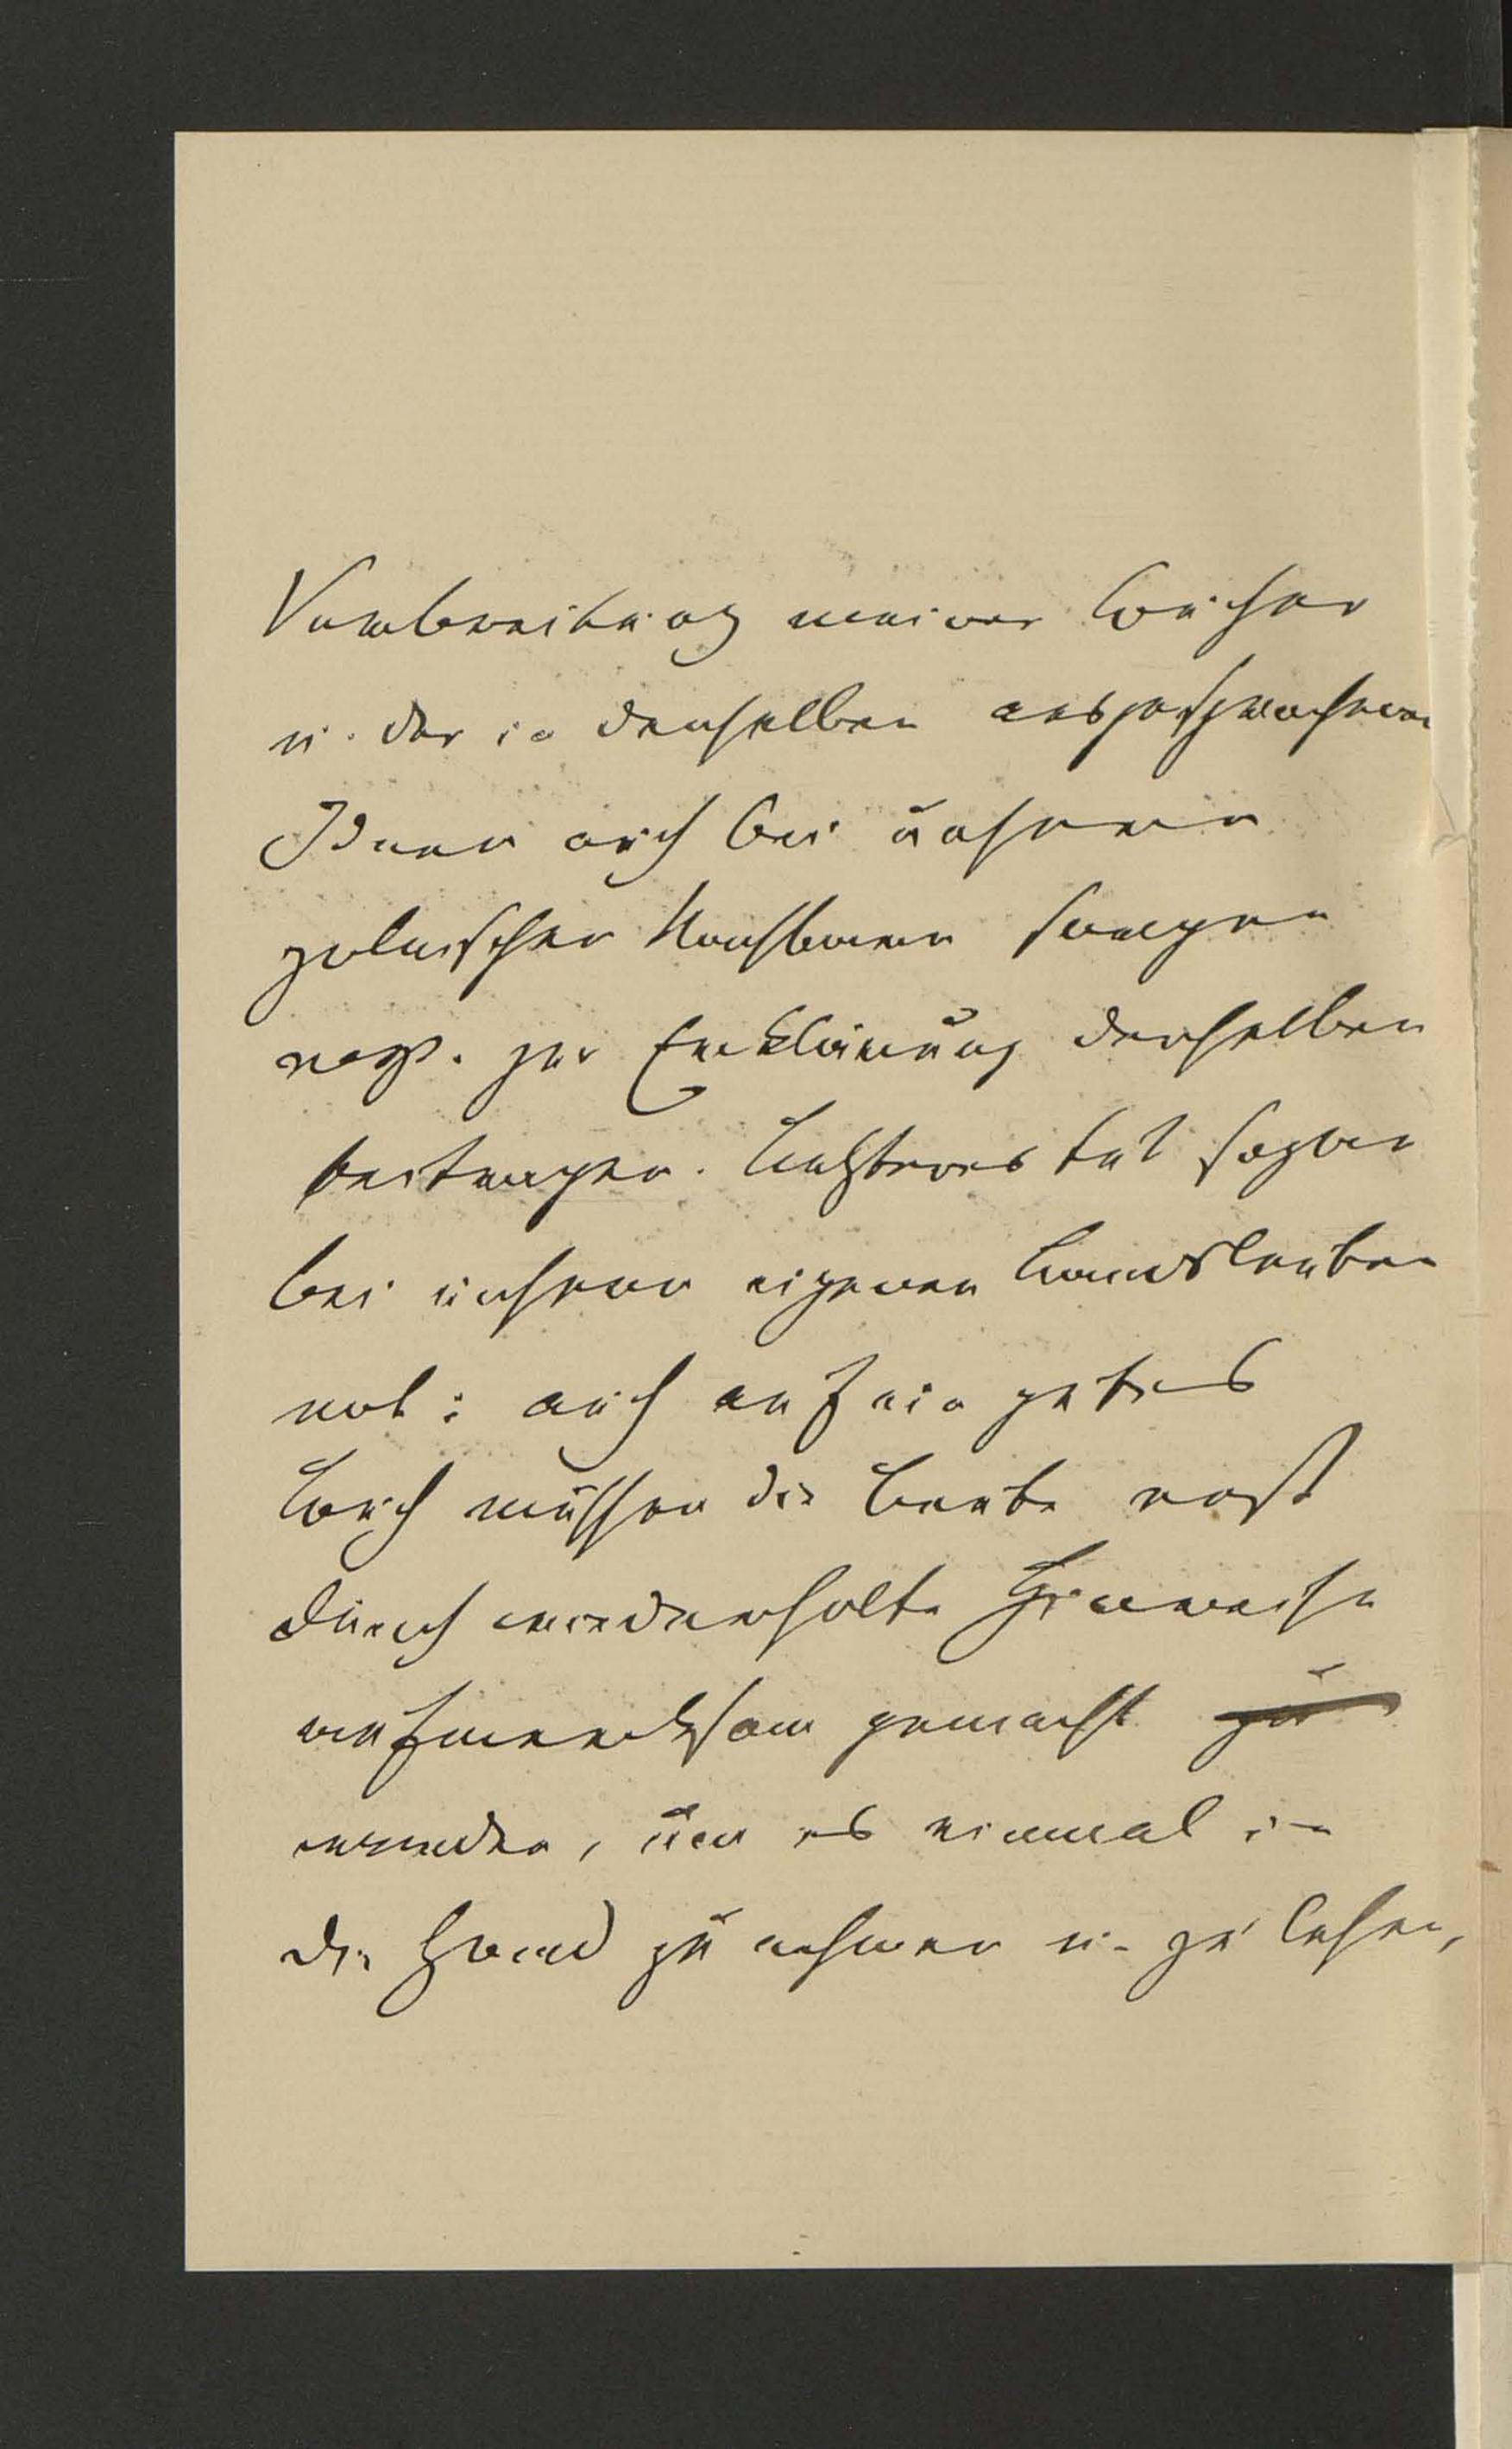 Verbreitung meiner Bücher
u. der in denselben ausgesprochenen
Ideen auch bei unseren
polnischen Nachbarn sorgen
resp. zur Erklärung derselben
beitragen. Letzteres tut sogar
bei unseren eigenen Landsleuten
not: auch auf ein gutes
Buch müssen die Leute erst
durch wiederholte Hinweise
aufmerksam gemacht zu
werden, um es einmal in
die Hand zu nehmen u. zu lesen,